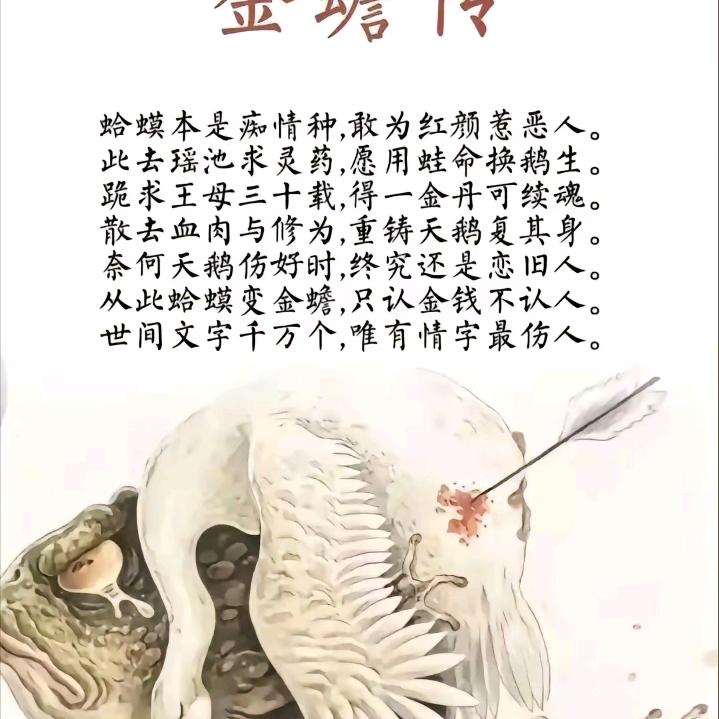 金蟾传
蛤蟆本是痴情种,敢为红颜惹恶人。
此去瑶池求灵药,愿用蛙命换鹅生。
跪求王母三十载,得一金丹可续魂。
散去血肉与修为,重铸天鹅复其身。
奈何天鹅伤好时,终究还是恋旧人。
从此蛤蟆变金蟾,只认金钱不认人。
世间文字千万个,唯有情字最伤人。